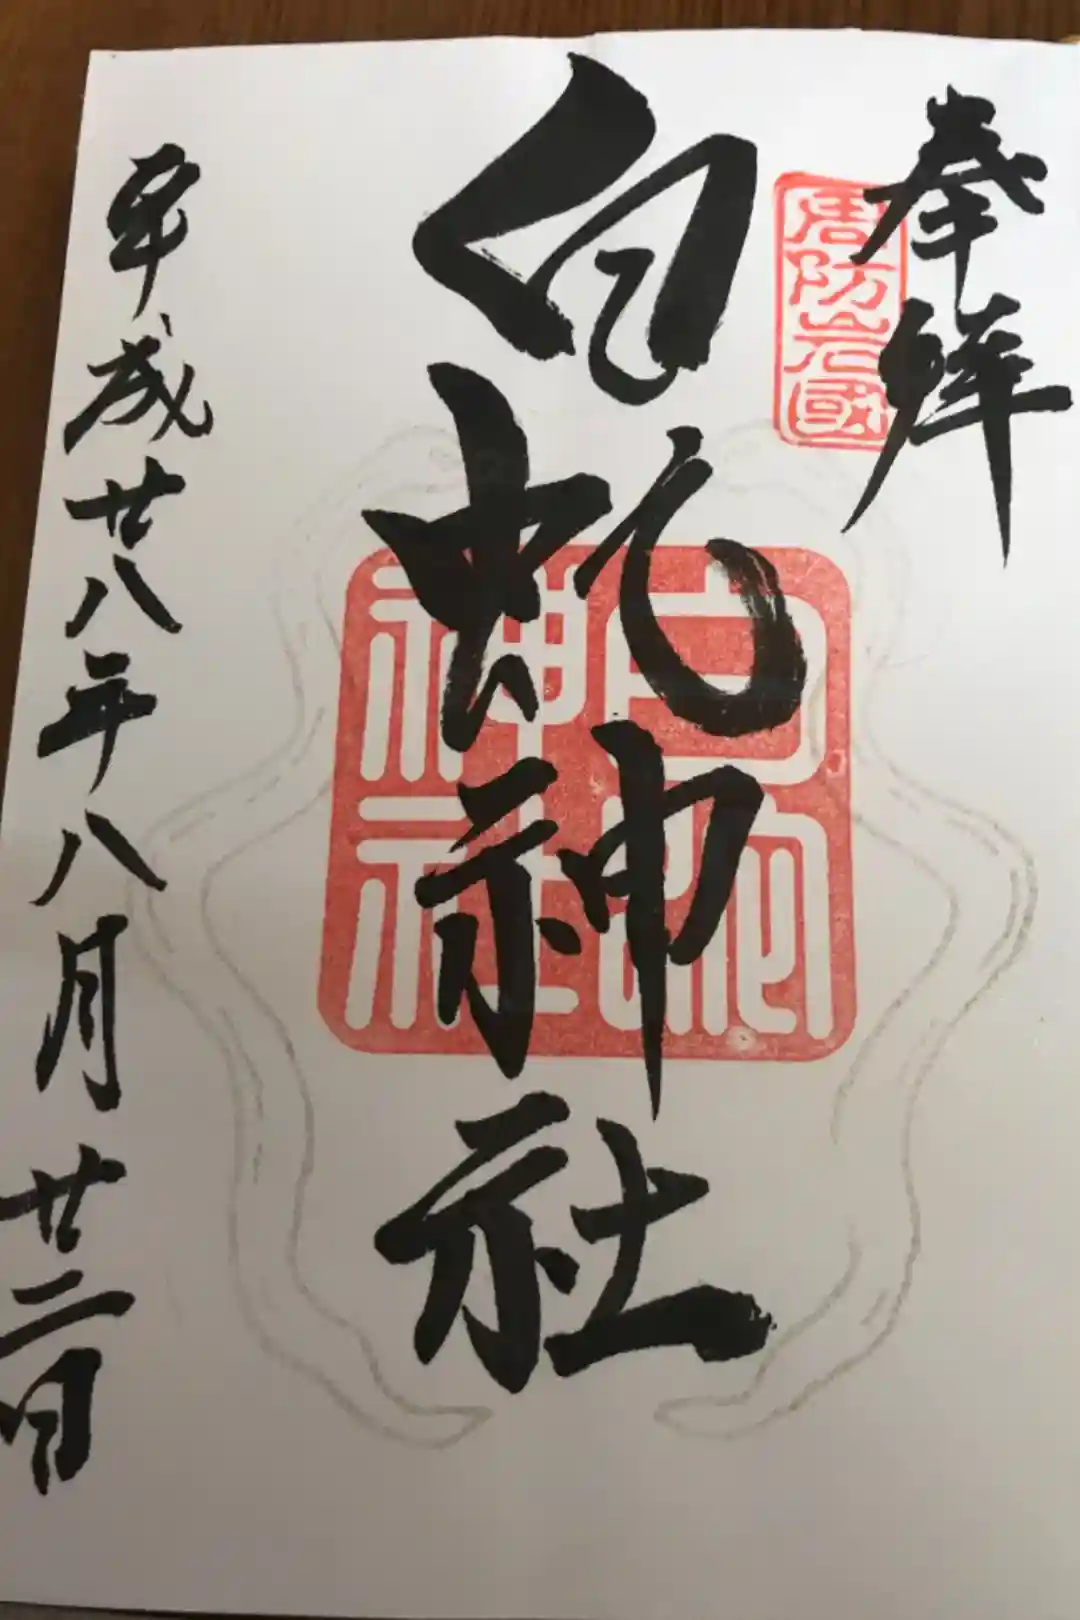 奉拝
周防岩國
白蛇神社
白蛇神社
平成廿八年八月廿二日